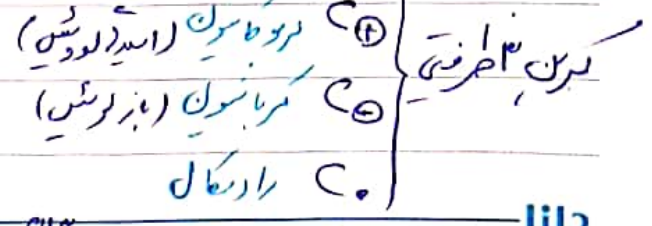 کربن ۳ ظرفیتی
C⊕ کربوکاتیون (اسید لوویس)
C⊖ کربانیون (باز لوئیس)
C• رادیکال
دانا